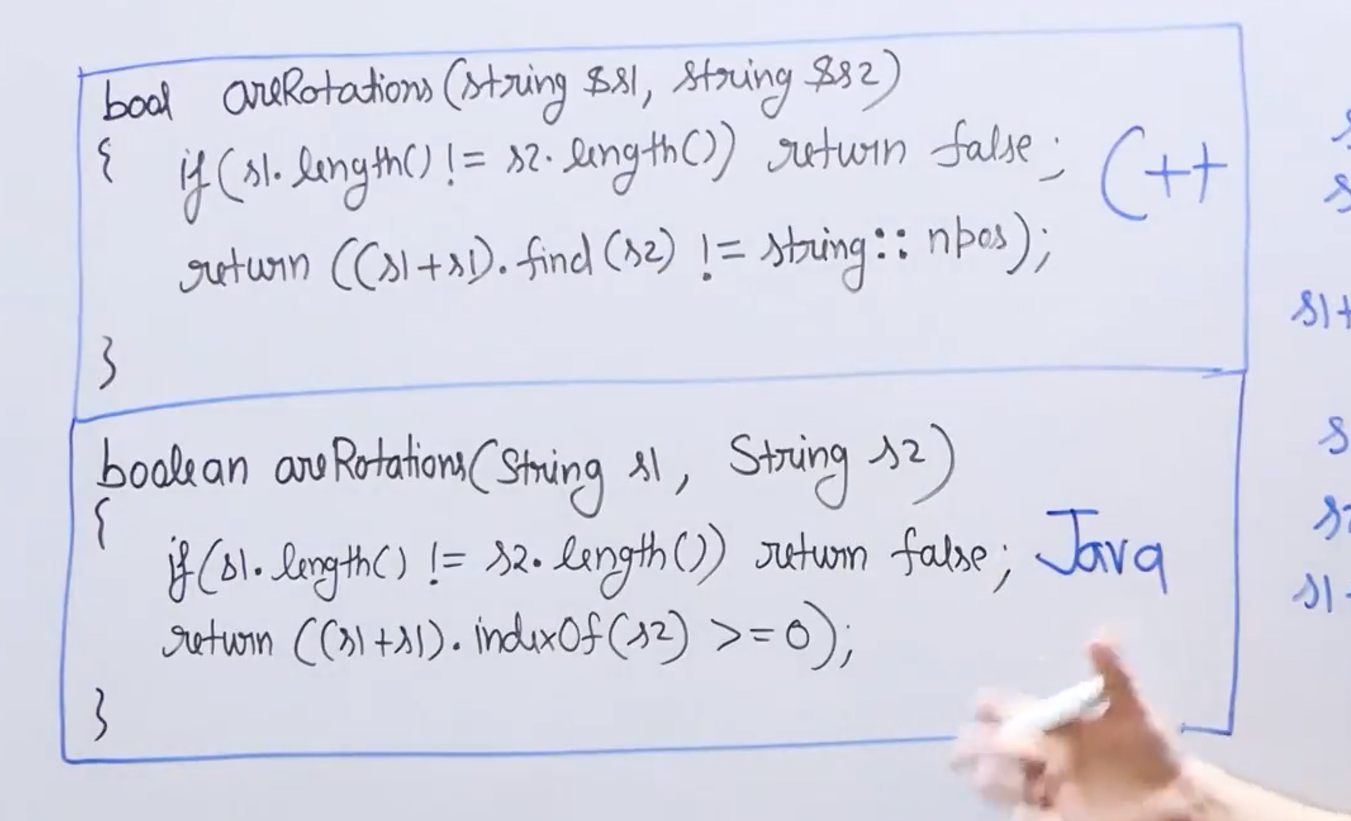 bool areRotations(string &s1, string &s2)
{ if(s1.length() != s2.length()) return false;
C++
return ((s1+s1).find(s2) != string::npos);
}
boolean areRotations(String s1, String s2)
{
if(s1.length() != s2.length()) return false;
Java
return ((s1+s1).indexOf(s2) >=0);
}
s
s
s1+
s
s2
s1